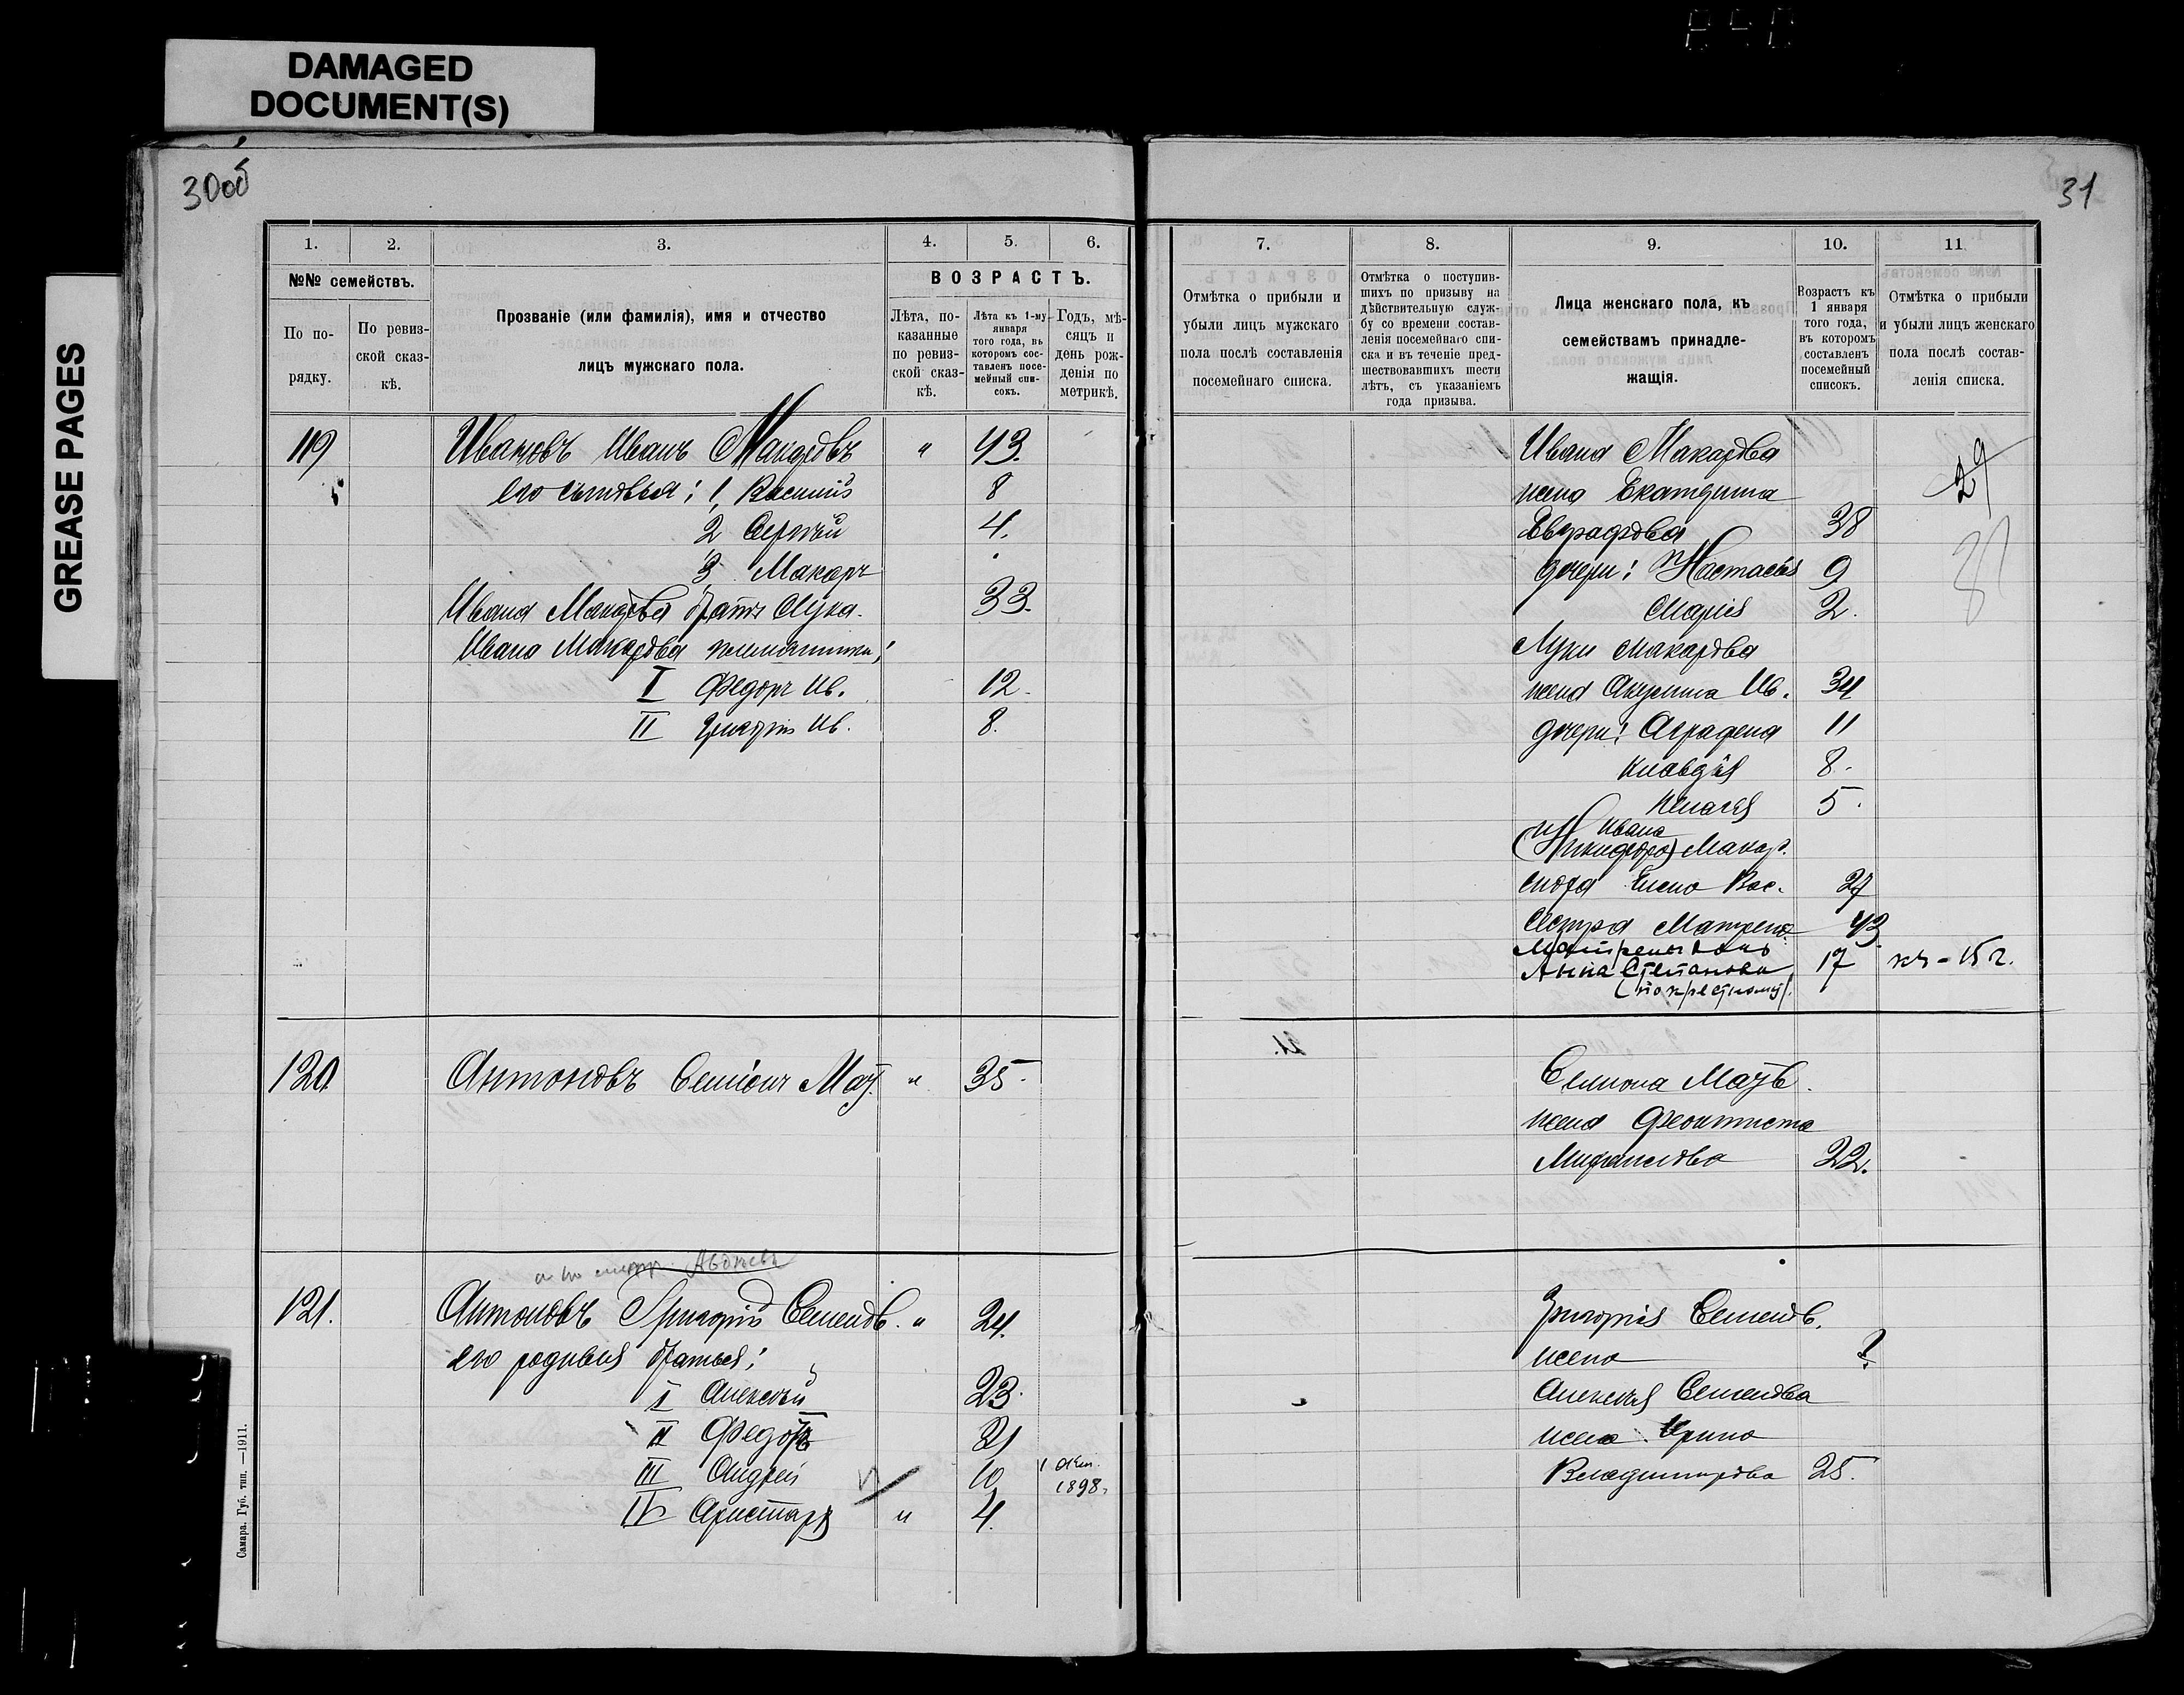 DAMAGED
DOCUMENT(S)
GREASE PAGES
30об
31
1.
2.
3.
4.
5.
6.
№№ семействъ.
По по-
рядку.
По ревиз-
ской сказ-
кѣ.
Прозваніе (или фамилія), имя и отчество
лицъ мужскаго пола.
ВОЗРАСТЪ.
Лѣта, по-
казанные
по ревиз-
ской сказ-
кѣ.
Лѣта къ 1-му
января
того года, въ
которомъ сос-
тавленъ посе-
мейный спи-
сокъ.
Годъ, мѣ-
сяцъ и
день рож-
денія по
метрикѣ.
119
Ивановъ Иванъ Макаровъ " 43.
его сыновья: 1, Василій 8
2 Сергѣй 4.
3 Макаръ
Ивана Макарова братъ Лука. 33.
Ивана Макарова племянники:
I Федоръ Ив. 12.
II Григорій Ив. 8.
120 Антоновъ Семіонъ Маз. " 35.
Авдѣевъ
121. Антоновъ Григорій Семенов. " 24.
его родныя братья:
I Алексѣй 23.
II Федоръ 21
III Андрей 10 1 Окт.
1898.
IV Аристархъ " 4.
Самара. Губ. тип. —1911.
7.
8.
9.
10.
11
Отмѣтка о прибыли и
убыли лицъ мужскаго
пола послѣ составленія
посемейнаго списка.
Отмѣтка о поступив-
шихъ по призыву на
дѣйствительную служ-
бу со времени состав-
ленія посемейнаго спи-
ска и въ теченіе пред-
шествовавшихъ шести
лѣтъ, съ указаніемъ
года призыва.
Лица женскаго пола, къ
семействамъ принадле-
жащія.
Возрастъ къ
1 января
того года,
въ которомъ
составленъ
посемейный
списокъ.
Отмѣтка о прибыли
и убыли лицъ женскаго
пола послѣ состав-
ленія списка.
Ивана Макарова
жена Екатерина 29
Евграфова 38
дочери: Настасья 9
Марія 2.
Луки Макарова
жена Акулина Ив. 34
дочери: Аграфена 11
Клавдія 8.
Пелагея 5.
Ивана
(Никифора) Макар.
сноха Елена Вас. 27
Сестра Матрена 43
Матрены дочь
Анна Степанова 17 къ-15 г.
(по крестному).
Семиона Маз.
жена Феоктиста
Миханлова 22.
Григорія Семенов.
жена ?
Алексѣя Семенова
жена Ирина
Владимирова 25.